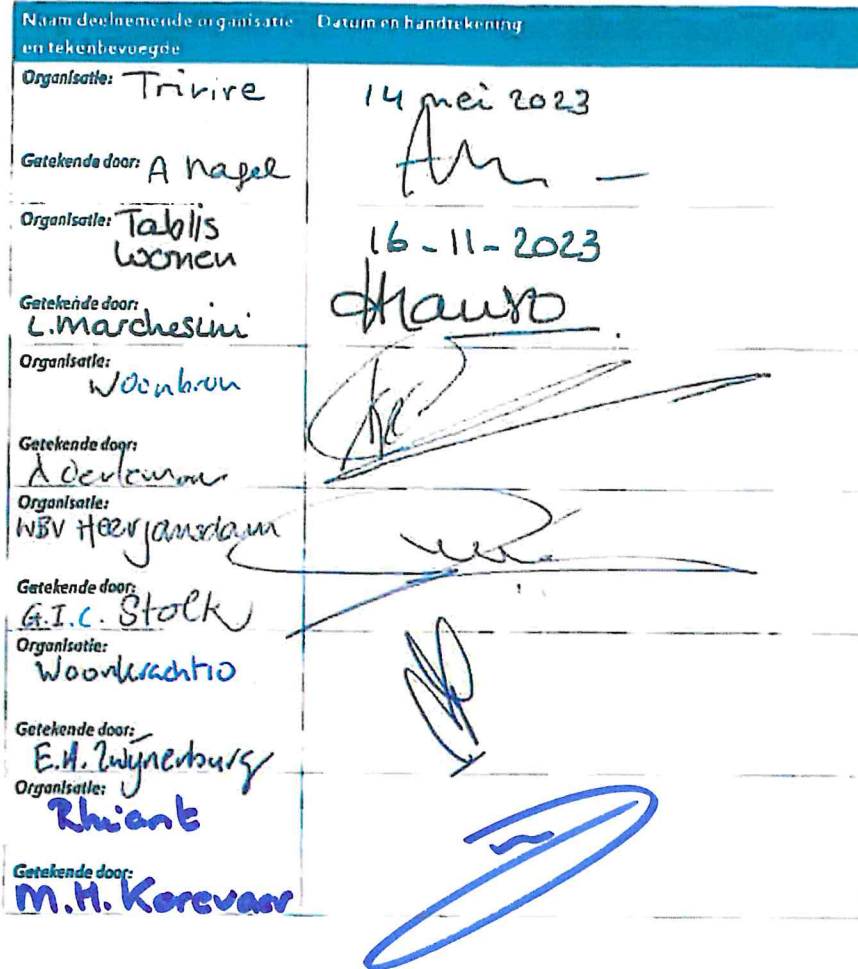 Naam deelnemende organisatie Datum en handtekening
en tekenbevoegde
Organisatie: Trivire
14 mei 2023
Getekende door: A Nagel
Organisatie: Tablis
Wonen
16-11-2023
Getekende door:
L. Marchesini
Organisatie:
Woonbron
Getekende door:
Organisatie:
WBV Heerjansdam
Getekende door:
G.I.C. Stolk
Organisatie:
Woonkracht10
Getekende door:
E.H. Zwijnenburg
Organisatie:
Rhiant
Getekende door:
M.H. Korevaar